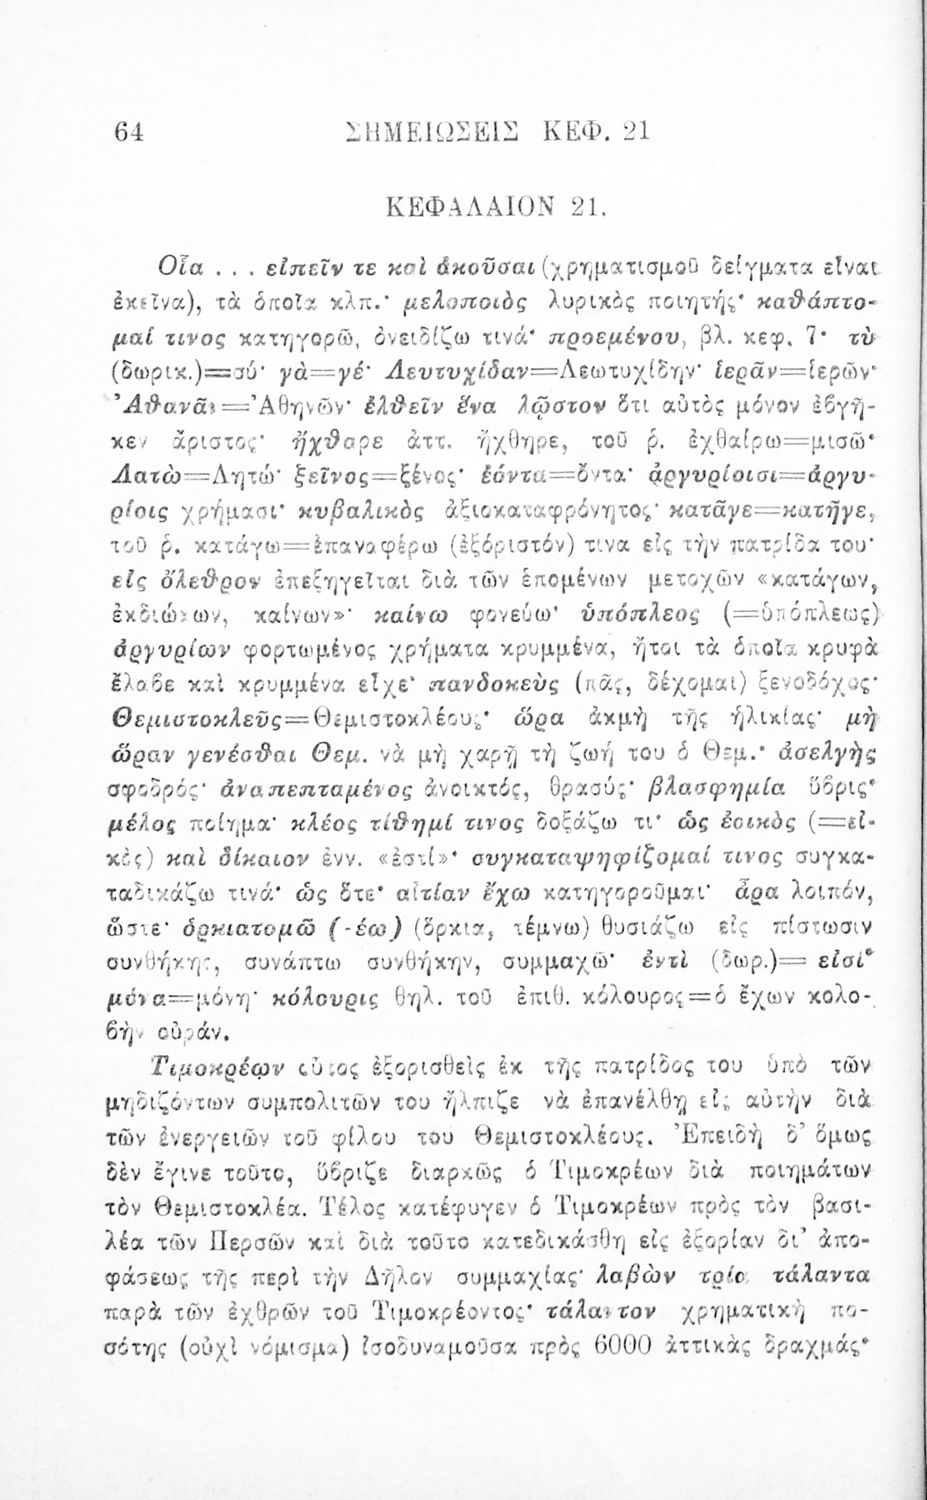 64 ΣΗΜΕΙΩΣΕΙΣ ΚΕΦ. 21
ΚΕΦΑΛΑΙΟΝ 21.
Οἷα . . . εἰπεῖν τε καὶ ἀκοῦσαι (χρηματισμοῦ δείγματα εἶναι
ἐκεῖνα), τὰ ὁποῖα κλπ.· μελοποιὸς λυρικὸς ποιητής· καθάπτο-
μαί τινος κατηγορῶ, ὀνειδίζω τινά· προεμένου, βλ. κεφ. 7· τὺ
(δωρικ.)=σύ· γὰ=γέ· Λευτυχίδαν=Λεωτυχίδην· ἱερᾶν=ἱερῶν·
Ἀθανᾶν=Ἀθηνῶν· ἐλθεῖν ἕνα λῷστον ὅτι αὐτὸς μόνον ἐβγῆ-
κεν ἄριστος· ἤχθαρε ἀττ. ἤχθηρε, τοῦ ῥ. ἐχθαίρω=μισῶ·
Λατὼ=Λητώ· ξεῖνος=ξένος· ἐόντα=ὄντα· ἀργυρίοισι=ἀργυ-
ρίοις χρήμασι· κυβαλικὸς ἀξιοκαταφρόνητος· κατᾶγε=κατῆγε,
τοῦ ῥ. κατάγω=ἐπαναφέρω (ἐξόριστόν) τινα εἰς τὴν πατρίδα του·
εἰς ὄλεθρον ἐπεξηγεῖται διὰ τῶν ἑπομένων μετοχῶν «κατάγων,
ἐκδιώκων, καίνων»· καίνω φονεύω· ὑπόπλεος (=ὑπόπλεως)
ἀργυρίων φορτωμένος χρήματα κρυμμένα, ἤτοι τὰ ὁποῖα κρυφὰ
ἔλαβε καὶ κρυμμένα εἶχε· πανδοκεὺς (πᾶς, δέχομαι) ξενοδόχος·
Θεμιστοκλεῦς=Θεμιστοκλέους· ὥρα ἀκμὴ τῆς ἡλικίας· μὴ
ὥραν γενέσθαι Θεμ. νὰ μὴ χαρῇ τὴ ζωή του ὁ Θεμ.· ἀσελγὴς
σφοδρός· ἀναπεπταμένος ἀνοικτός, θρασύς· βλασφημία ὕβρις·
μέλος ποίημα· κλέος τίθημί τινος δοξάζω τι· ὡς ἐοικὸς (=εἰ-
κὸς) καὶ δίκαιον ἐνν. «ἐστί»· συγκαταψηφίζομαί τινος συγκα-
ταδικάζω τινά· ὡς ὅτε· αἰτίαν ἔχω κατηγοροῦμαι· ἆρα λοιπόν,
ὥστε· ὁρκιατομῶ (-έω) (ὅρκια, τέμνω) θυσιάζω εἰς πίστωσιν
συνθήκης, συνάπτω συνθήκην, συμμαχῶ· ἐντὶ (δωρ.)= εἰσί·
μόνα=μόνη· κόλουρις θηλ. τοῦ ἐπιθ. κόλουρος=ὁ ἔχων κολο-
βὴν οὐράν.
Τιμοκρέων οὗτος ἐξορισθεὶς ἐκ τῆς πατρίδος του ὑπὸ τῶν
μηδιζόντων συμπολιτῶν του ἤλπιζε νὰ ἐπανέλθῃ εἰς αὐτὴν διὰ
τῶν ἐνεργειῶν τοῦ φίλου του Θεμιστοκλέους. Ἐπειδὴ δ’ ὅμως
δὲν ἔγινε τοῦτο, ὕβριζε διαρκῶς ὁ Τιμοκρέων διὰ ποιημάτων
τὸν Θεμιστοκλέα. Τέλος κατέφυγεν ὁ Τιμοκρέων πρὸς τὸν βασι-
λέα τῶν Περσῶν καὶ διὰ τοῦτο κατεδικάσθη εἰς ἐξορίαν δι’ ἀπο-
φάσεως τῆς περὶ τὴν Δῆλον συμμαχίας· λαβὼν τρία τάλαντα
παρὰ τῶν ἐχθρῶν τοῦ Τιμοκρέοντος· τάλαντον χρηματικὴ πο-
σότης (οὐχὶ νόμισμα) ἰσοδυναμοῦσα πρὸς 6000 ἀττικὰς δραχμάς·